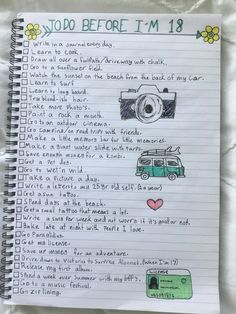 TO DO BEFORE I'M 18
Write in a journal every day.
Learn to cook.
Draw all over a footpath/driveway with chalk.
Go to a sunflower field.
Watch the sunset on the beach from the back of my car.
Learn to surf
Learn to long board.
Try blond-ish hair.
Take more photos.
Paint a rock a month.
Go to an outdoor cinema.
Go camping/on road trips with friends.
Make a little memory jar for little memories.
Make a giant water slide with tarps.
Save enough money for a kombi.
Get a pet dog.
Go to wet'n wild.
Take a picture a day.
Write a letter to my 25 yr old self. (in a year)
Get a sun tattoo.
Spend days at the beach.
Get a small tattoo that means a lot.
Write a song for week and not worry is it's good or not.
Bake late at night with people I love.
Go Paragliding.
Get my license.
Save up money for an adventure.
Drive down to Victoria to Surfers Alannah. (When I'm 17)
Release my first album.
Spend a week over Summer with my bff's.
Go to a music festival.
Go zip lining.
License